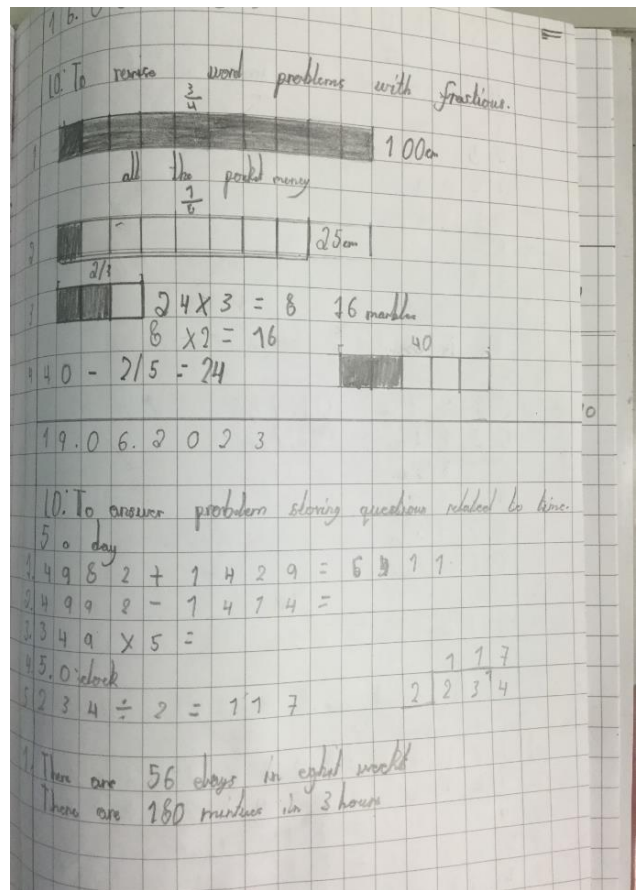 16.0
LO: To revise word problems with fractions.
3/4
1 100cm
all the pocket money
1/8
2 25cm
2/3
3 24 X 3 = 8 16 marbles
8 X 2 = 16
40
4 40 - 2/5 = 24
19.06.2023
LO: To answer probdem sloving questions related to time.
5 o day
1. 4982 + 1429 = 6 11
2. 4998 - 1414 =
3. 349 X 5 =
4. 5 O'clock
117
5. 234 ÷ 2 = 117 2 234
1. There are 56 days in eghit weeks
There are 180 mintues in 3 hours